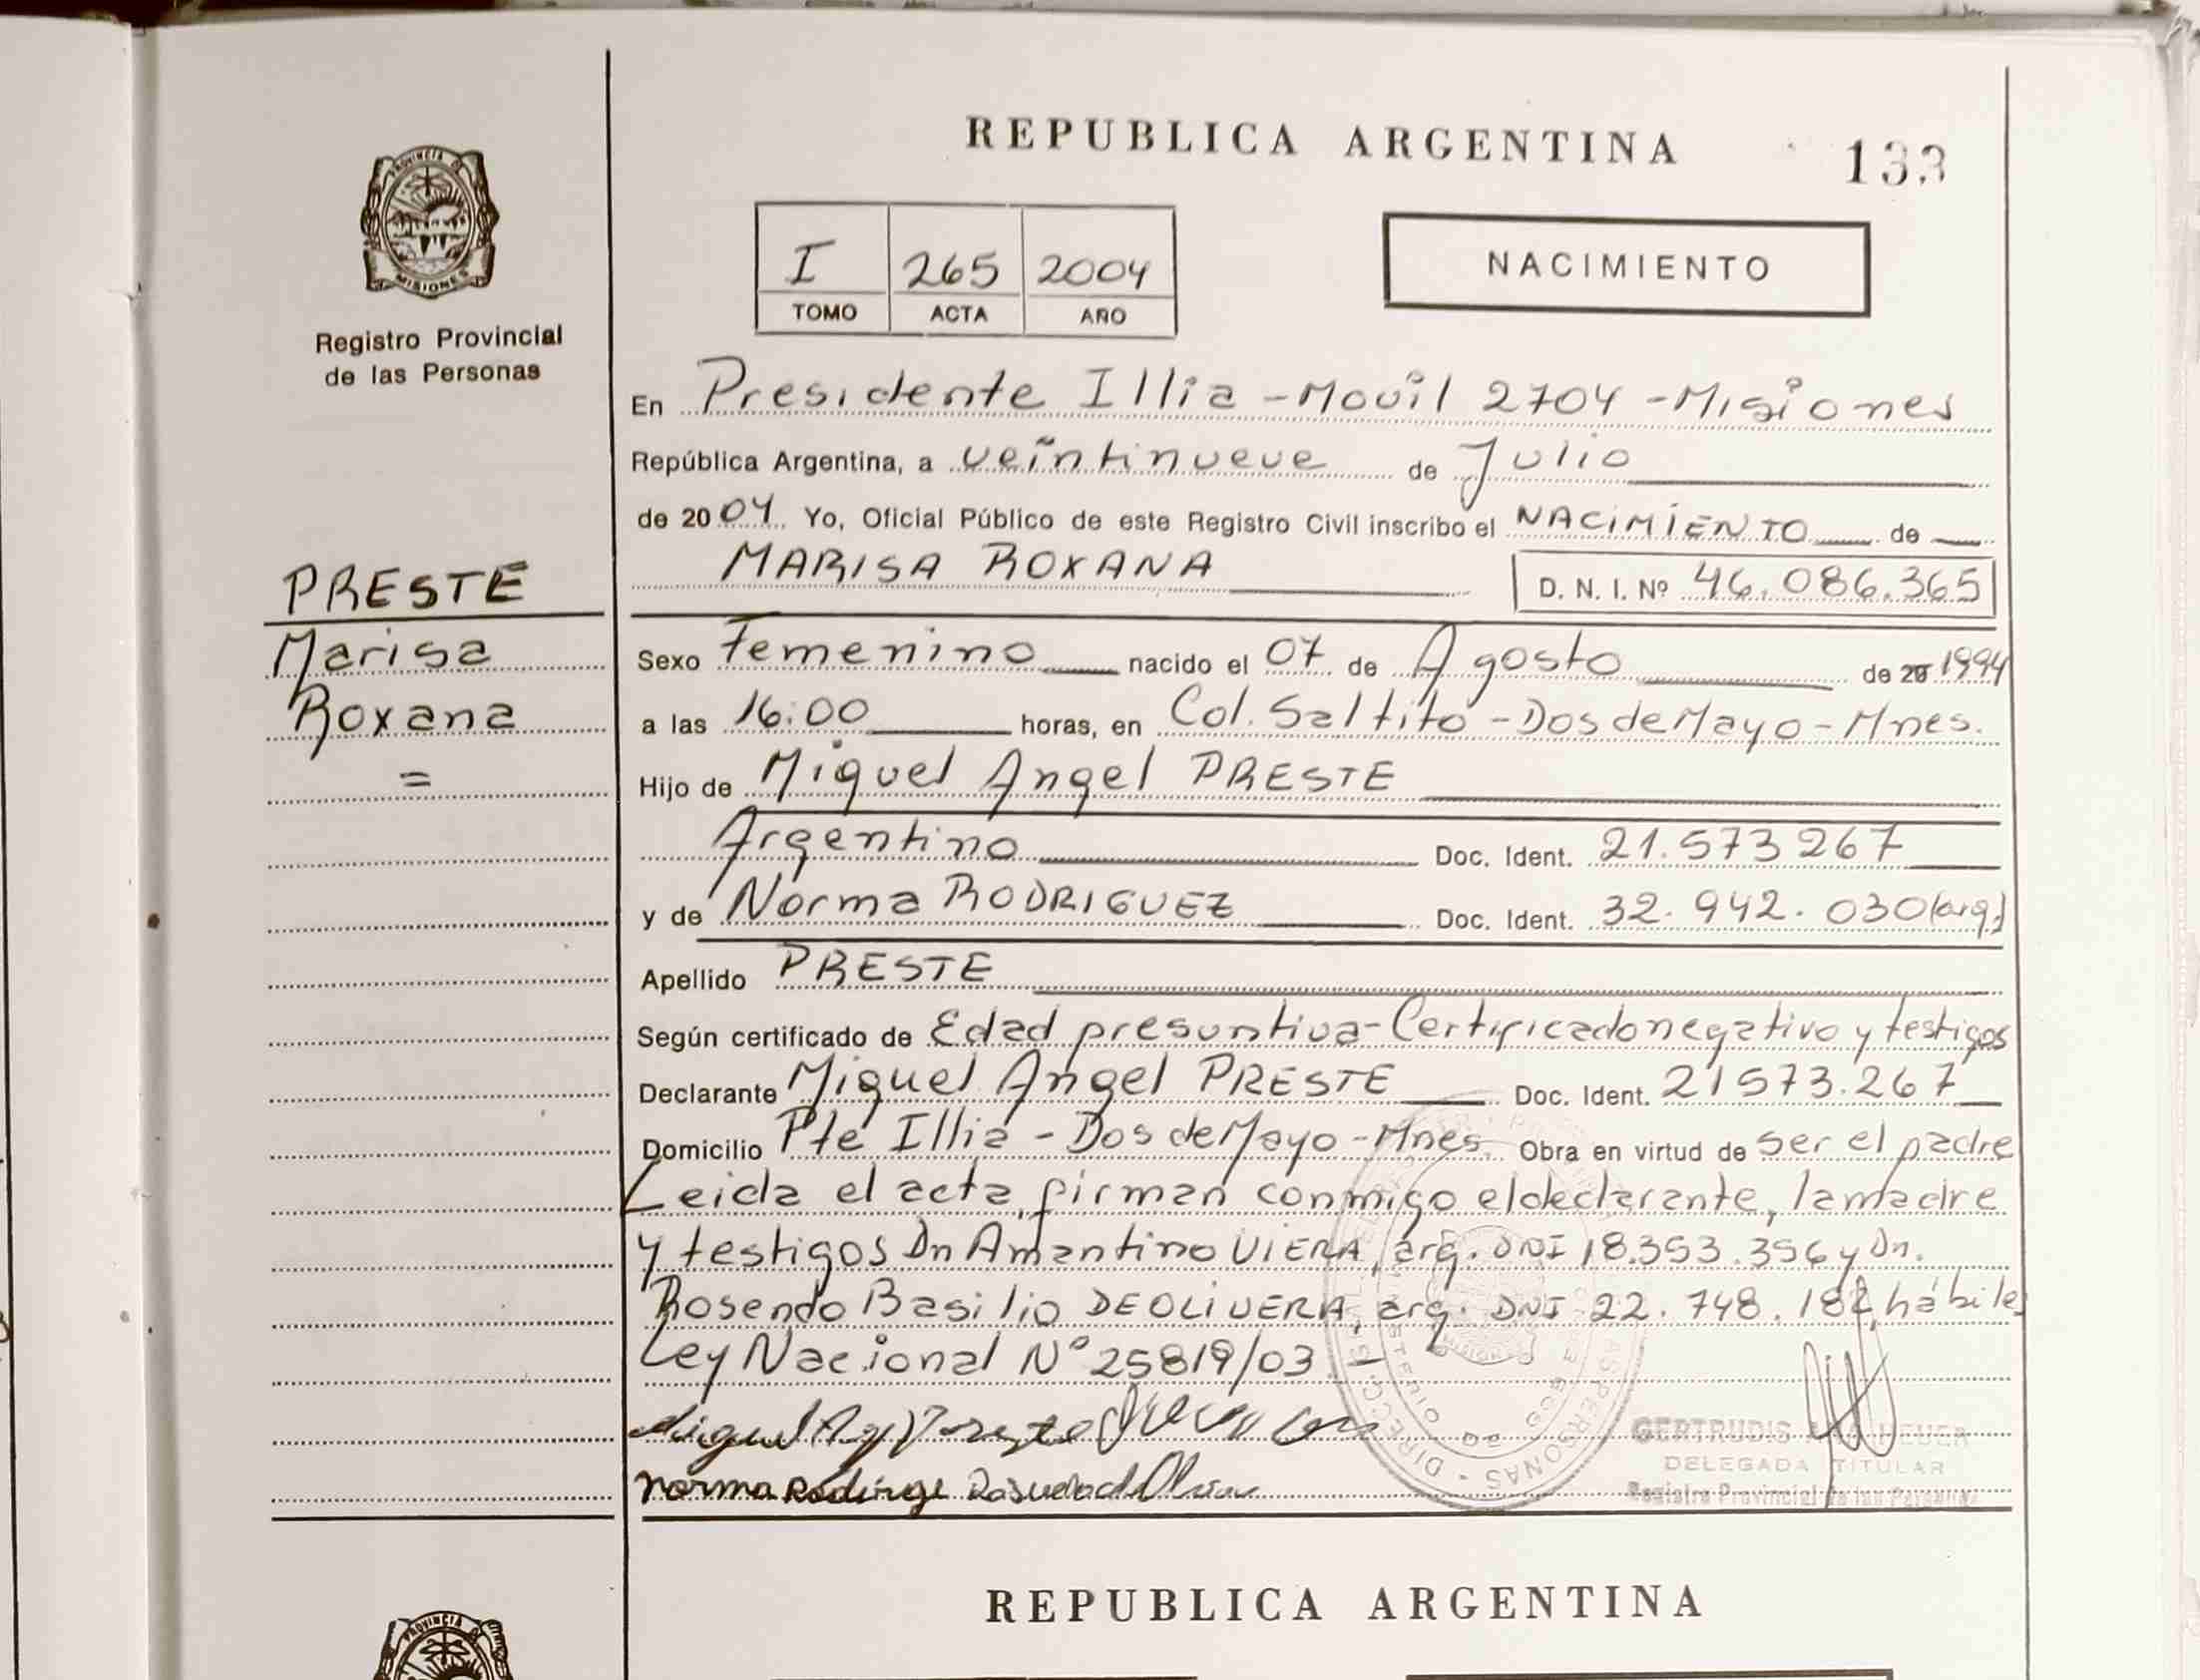 REPUBLICA ARGENTINA
133
PROVINCIA DE
MISIONES
Registro Provincial
de las Personas
I 265 2004
TOMO ACTA AÑO
NACIMIENTO
En Presidente Illia - Movil 2704 - Misiones
República Argentina, a veintinueve de Julio
de 2004 Yo, Oficial Público de este Registro Civil inscribo el NACIMIENTO de
MARISA ROXANA D. N. I. Nº 46.086.365
PRESTE
Marisa
Roxana
=
Sexo Femenino nacido el 07 de Agosto de 20 1994
a las 16:00 horas, en Col. Saltito - Dos de Mayo - Mnes.
Hijo de Miguel Angel PRESTE
Argentino Doc. Ident. 21.573 267
y de Norma RODRIGUEZ Doc. Ident. 32.942.030 (arg.)
Apellido PRESTE
Según certificado de Edad presuntiva - Certificado negativo y testigos
Declarante Miguel Angel PRESTE Doc. Ident. 21573.267
Domicilio Pte Illia - Dos de Mayo - Mnes. Obra en virtud de ser el padre
Leida el acta, firman conmigo el declarante, la madre
y testigos Dn Amantino VIERA, arg. DNI 18.353.356 y Dn.
Rosendo Basilio DEOLIVERA, arg. DNI 22.748.182, hábiles
Ley Nacional Nº 25819/03 -
GERTRUDIS HEUER
DELEGADA TITULAR
Registro Provincial de las Personas
REPUBLICA ARGENTINA
PROVINCIA DE